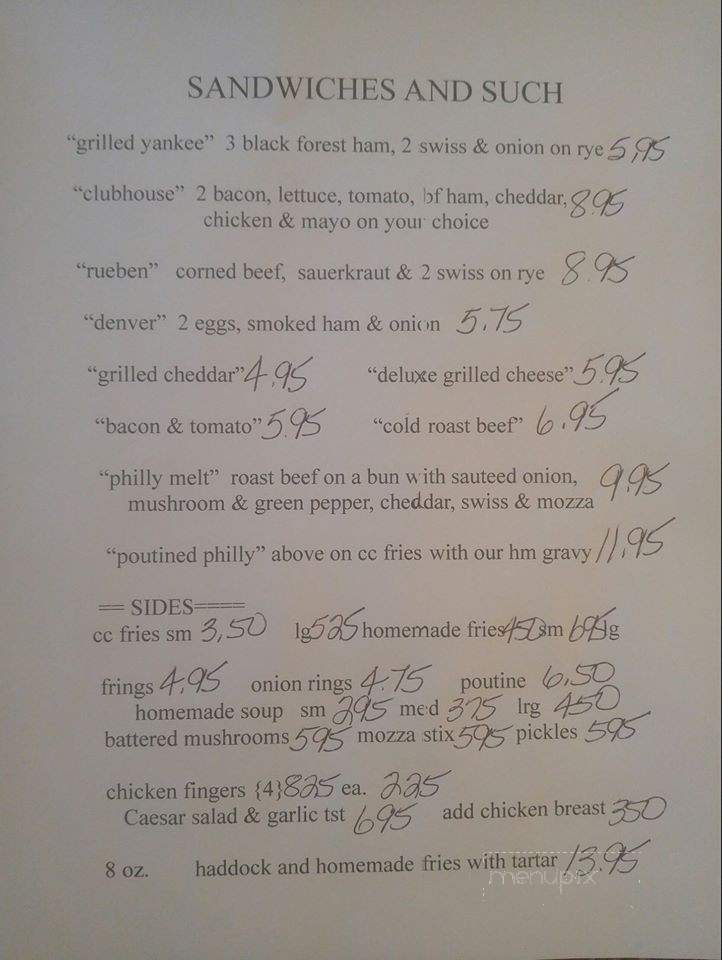 SANDWICHES AND SUCH
“grilled yankee” 3 black forest ham, 2 swiss & onion on rye 5,95
“clubhouse” 2 bacon, lettuce, tomato, bf ham, cheddar, 8.95
chicken & mayo on your choice
“rueben” corned beef, sauerkraut & 2 swiss on rye 8.95
“denver” 2 eggs, smoked ham & onion 5.75
“grilled cheddar” 4.95 “deluxe grilled cheese” 5.95
“bacon & tomato” 5.95 “cold roast beef” 6.95
“philly melt” roast beef on a bun with sauteed onion, 9.95
mushroom & green pepper, cheddar, swiss & mozza
“poutined philly” above on cc fries with our hm gravy 11.95
== SIDES====
cc fries sm 3,50 lg 525 homemade fries 450 sm 695 lg
frings 4.95 onion rings 4.75 poutine 6.50
homemade soup sm 295 med 375 lrg 450
battered mushrooms 595 mozza stix 595 pickles 595
chicken fingers {4} 825 ea. 225
Caesar salad & garlic tst 695 add chicken breast 350
8 oz. haddock and homemade fries with tartar 13.95
menupix